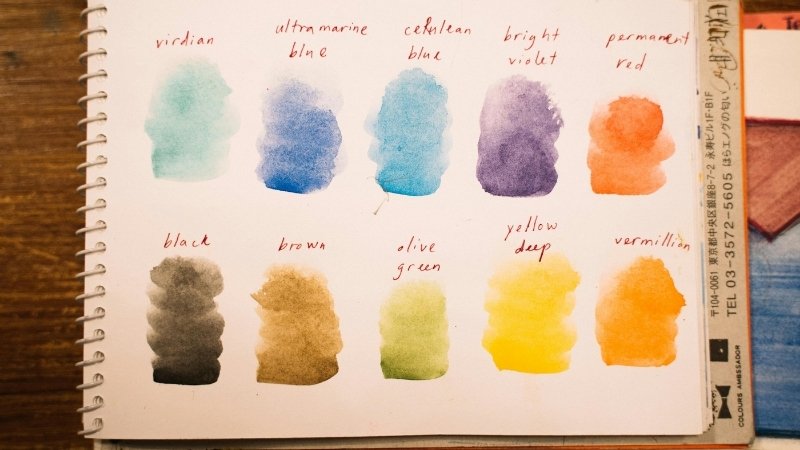 virdian
ultramarine
blue
cerulean
blue
bright
violet
permanent
red
black
brown
olive
green
yellow
deep
vermillion
〒104-0061 東京都中央区銀座8-7-2 永寿ビル1F・B1F ほらエノグの匂い
TEL 03-3572-5605
COLOURS AMBSSADOR